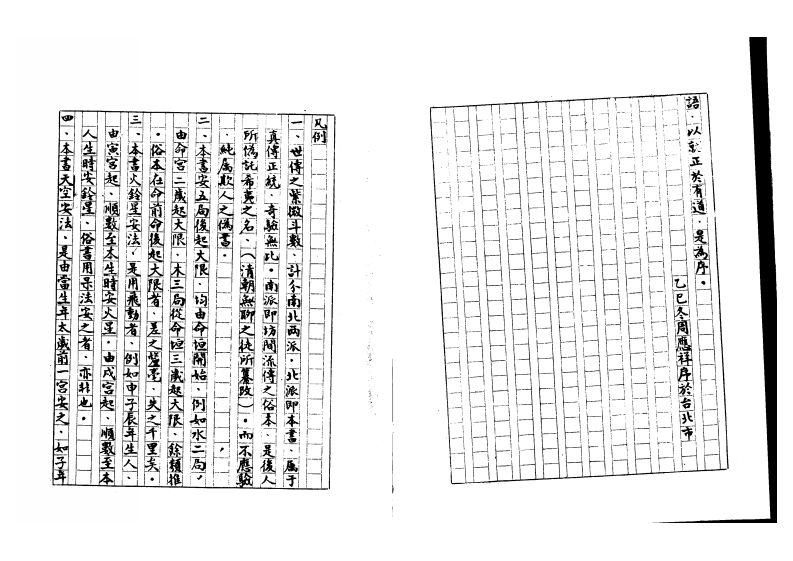 語，以就正於有道，是為序。
乙巳冬周應祥序於台北市
凡例
一、世傳之紫微斗數，計分南北兩派。北派即本書，屬于
真傳正統，奇驗無比。南派即坊間流傳之俗本，是後人
所偽託希夷之名，（清朝無聊之徒所纂改）。而不應驗
，純屬欺人之偽書。
二、本書安五局後起大限，均由命垣開始，例如水二局，
由命宮二歲起大限，木三局從命垣三歲起大限，餘類推
。俗本在命前命後起大限者，差之釐毫，失之千里矣。
三、本書火鈴星安法，是用飛動者，例如申子辰年生人，
由寅宮起，順數至本生時安火星，由戌宮起，順數至本
人生時安鈴星，俗書用呆法安之者，亦非也。
四、本書天空安法，是由當生年太歲前一宮安之，如子年